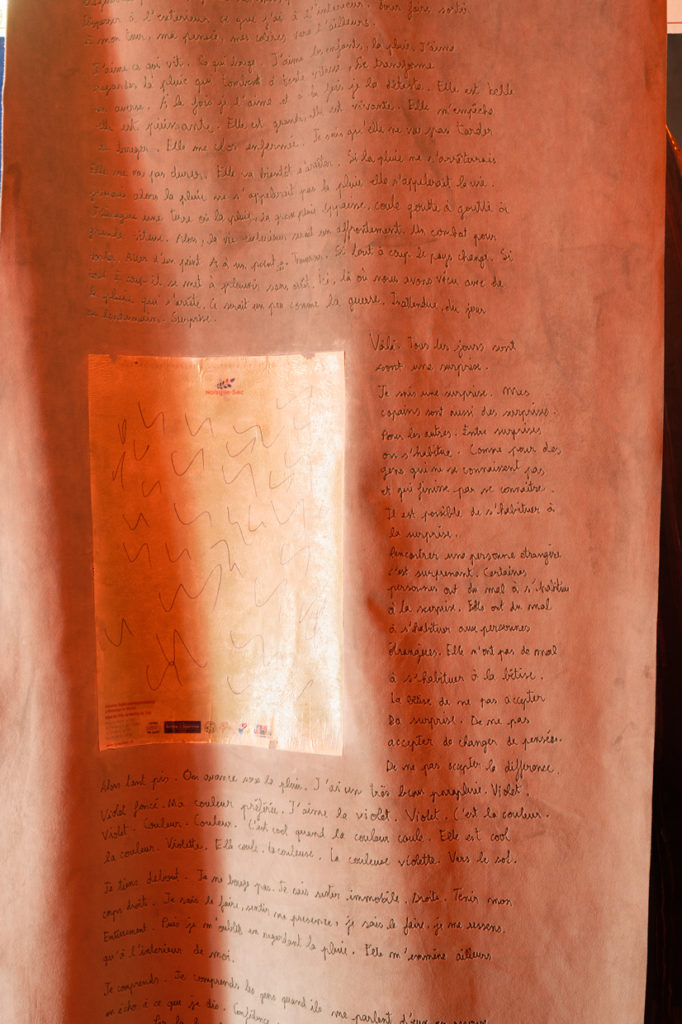 à l'extérieur ce que j'ai à l'intérieur. Pour faire sortir
à mon tour, ma pensée, mes colères vers l'ailleurs.
J'aime ce qui vit. Ce qui bouge. J'aime les enfants, la pluie. J'aime
regarder la pluie qui tombe à vitesse, se transforme
en averse. A la fois je l'aime et à la fois je la déteste. Elle est belle
elle est puissante. Elle est grande, elle est vivante. Elle m'empêche
de bouger. Elle me tien enfermée. Je sais qu'elle ne va pas tarder
Elle ne va pas durer. Elle va bientôt s'arrêter. Si la pluie ne s'arrêterais
jamais alors la pluie ne s'appelerait pas la pluie elle s'appelerait la vie.
J'imagine une terre où la pluie, la grosse pluie épaisse, coule goutte à goutte à
grande vitesse. Alors, la vie extérieur serait un affrontement. Un combat pour
aller d'un point A à un point Si tout à coup le pays change. Si
tout à coup il se met à pleuvoir sans arrêt. Ici, là où nous avons vécu avec de
la pluie qui s'arrête. Ce serait un peu comme la guerre. Inattendue, du jour
au lendemain. Surprise.
Voilà. Tous les jours sont
sont une surprise.
Je suis une surprise. Mes
copains sont aussi des surprises.
Pour les autres. Entre surprises
on s'habitue. Comme pour des
gens qui ne se connaissent pas
et qui finisse par se connaître.
Il est possible de s'habituer à
la surprise.
Rencontrer une personne étrangère
c'est surprenant. Certaines
personnes ont du mal à s'habituer
à la surprise. Elles ont du mal
à s'habituer aux personnes
étrangères. Elle n'ont pas de mal
à s'habituer à la bêtise.
La bêtise de ne pas accepter
la surprise. De ne pas
accepter de changer de pensée.
De ne pas accepter la différence.
Noisy-le-Sec
Alors tant pis. On avance sous la pluie. J'ai un très beau parapluie. Violet.
Violet foncé. Ma couleur préférée. J'aime le violet. Violet. C'est la couleur.
Violet. Couleur. Couleur. C'est cool quand la couleur coule. Elle est cool
la couleur. Violette. Elle coule. La couleuse. La couleuse violette. Vers le sol.
Je tiens debout. Je ne bouge pas. Je sais rester immobile. Droite. Tenir mon
corps droit. Je sais le faire, sentir ma présence, je sais le faire, je me ressens.
Entièrement. Puis je m'oublis en regardant la pluie. Elle m'emmène ailleurs
qu'à l'intérieur de moi.
Je comprends. Je comprends les gens quand ils me parlent d'eux
en écho à ce que je dis. Confidence